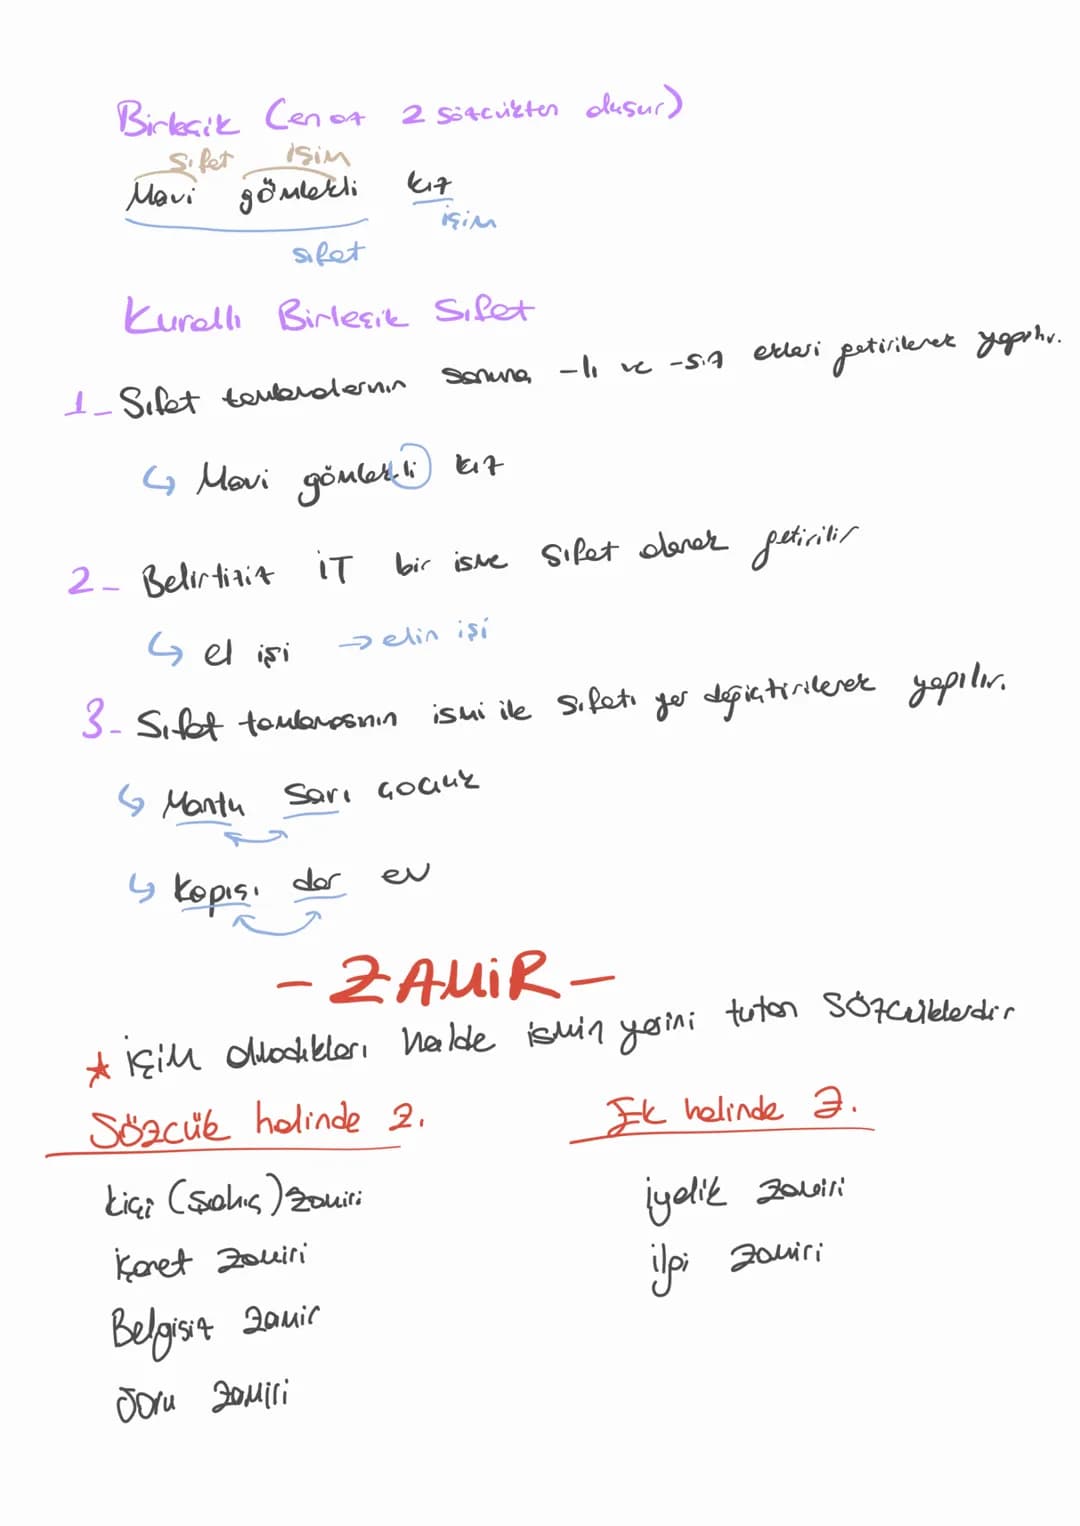 Birleşik (en az 2 sözcükten oluşur)
Sıfet isim
Mavi gömlekli kız
isim
sıfat
Kurallı Birleşik Sıfat
1- Sıfat tamlamalarının sonuna -lı ve -sız ekleri getirilerek yapılır.
↳ Mavi gömlekli kız
2- Belirtisiz İT bir isme sıfat olarak getirilir
↳ el işi → elin işi
3- Sıfat tamlamasının ismi ile sıfatı yer değiştirilerek yapılır.
↳ Mantu Sarı çocuk
↳ Kapısı dar ev
- ZAMİR -
★ isim olmadıkları halde ismin yerini tutan sözcüklerdir
Sözcük halinde z. Ek halinde z.
kişi (şahıs) zamiri iyelik zamiri
işaret zamiri ilgi zamiri
Belgisiz zamir
Soru zamiri